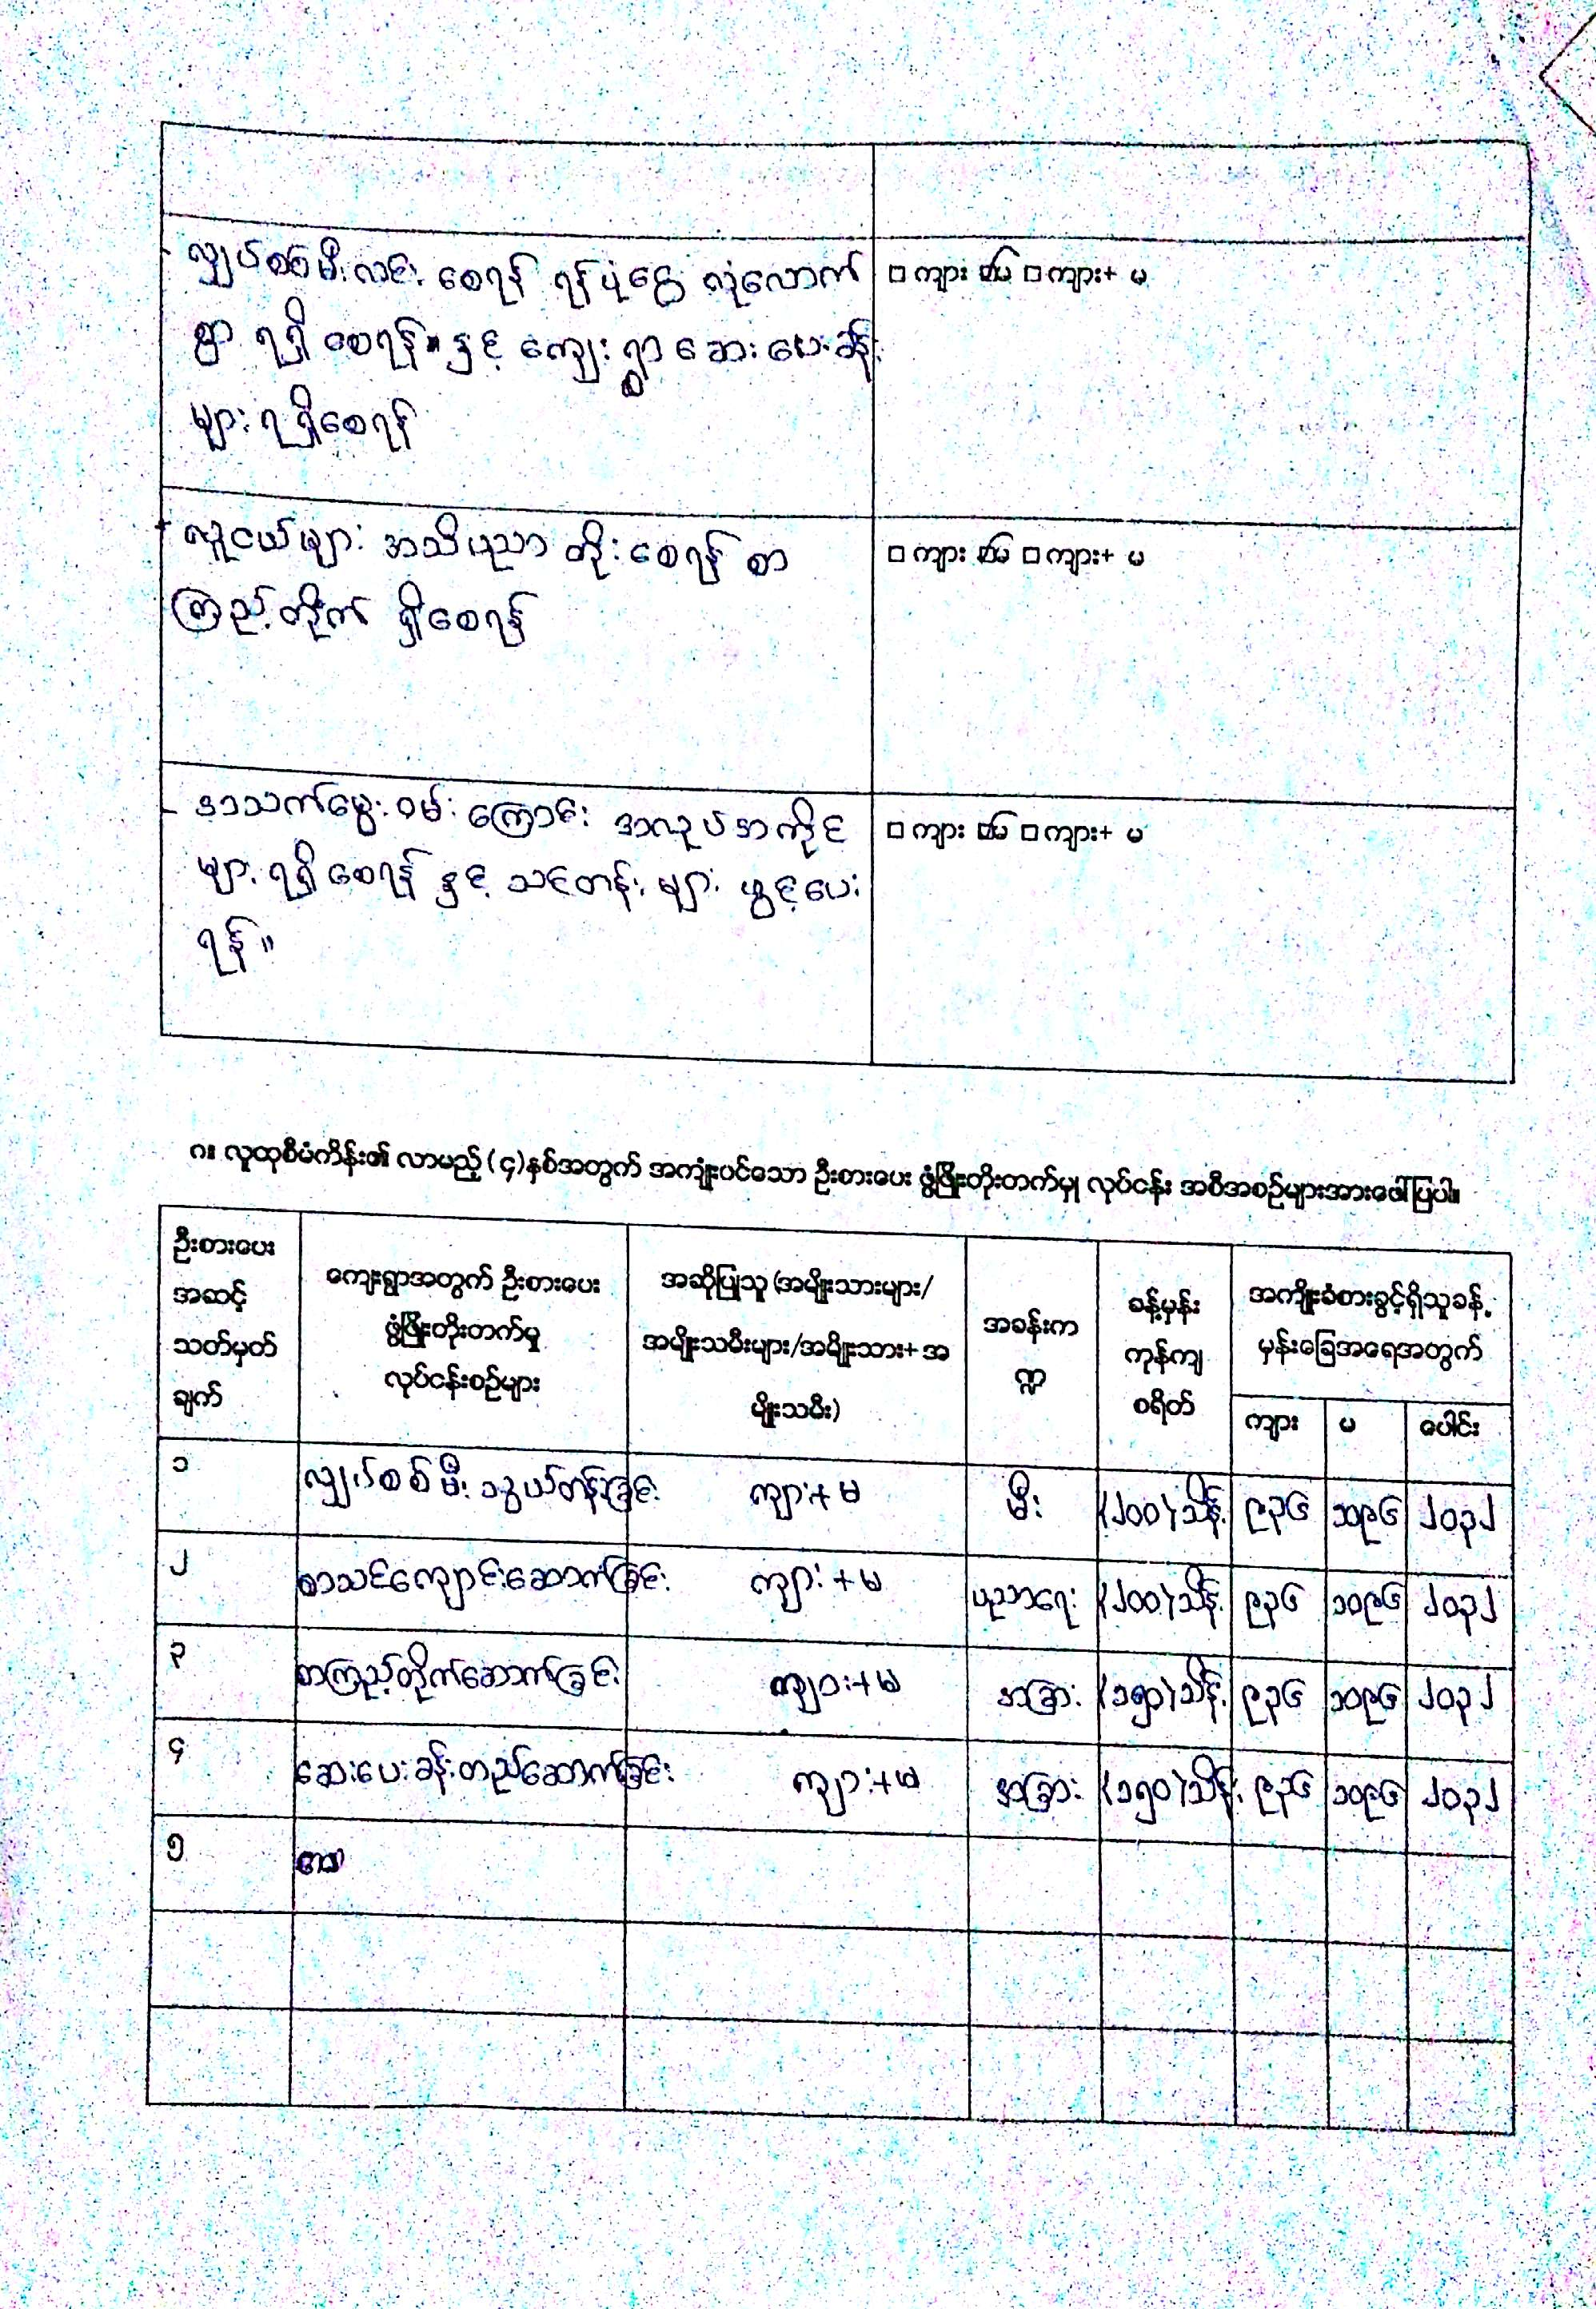 - လျှပ်စစ်မီးလင်းစေရန် ရန်ပုံငွေ လုံလောက်
စွာ ရရှိစေရန်။ နှင့် ကျေးရွာဆေးပေးခန်း
များရရှိစေရန်
□ ကျား □မ □ ကျား+ မ
+ လူငယ်များ အသိပညာ တိုးစေရန် စာ
ကြည့်တိုက် ရှိစေရန်
□ ကျား □မ □ ကျား+ မ
- အသက်မွေးဝမ်းကြောင်း အလုပ်အကိုင်
များရရှိစေရန် နှင့် သင်တန်းများ ဖွင့်ပေး
ရန်။
□ ကျား □မ □ ကျား+ မ
ဂ။ လူထုစီမံကိန်း၏ လာမည့် (၄)နှစ်အတွက် အကျုံးဝင်သော ဦးစားပေး ဖွံ့ဖြိုးတိုးတက်မှု လုပ်ငန်း အစီအစဉ်များအားဖေါ်ပြပါ။
ဦးစားပေး
အဆင့်
သတ်မှတ်
ချက်
ကျေးရွာအတွက် ဦးစားပေး
ဖွံ့ဖြိုးတိုးတက်မှု
လုပ်ငန်းစဉ်များ
အဆိုပြုသူ (အမျိုးသားများ/
အမျိုးသမီးများ/အမျိုးသား+ အ
မျိုးသမီး)
အခန်းက
ဏ္ဍ
ခန့်မှန်း
ကုန်ကျ
စရိတ်
အကျိုးခံစားခွင့်ရှိသူခန့်
မှန်းခြေအရေအတွက်
ကျား မ ပေါင်း
၁ လျှပ်စစ်မီး သွယ်တန်းခြင်း ကျား+မ မီး (၂၀၀)သိန်း ၉၃၆ ၁၀၉၆ ၂၀၃၂
၂ စာသင်ကျောင်းဆောက်ခြင်း ကျား+မ ပညာရေး (၂၀၀)သိန်း ၉၃၆ ၁၀၉၆ ၂၀၃၂
၃ စာကြည့်တိုက်ဆောက်ခြင်း ကျား+မ အခြား (၁၅၀)သိန်း ၉၃၆ ၁၀၉၆ ၂၀၃၂
၄ ဆေးပေးခန်းတည်ဆောက်ခြင်း ကျား+မ အခြား (၁၅၀)သိန်း ၉၃၆ ၁၀၉၆ ၂၀၃၂
၅